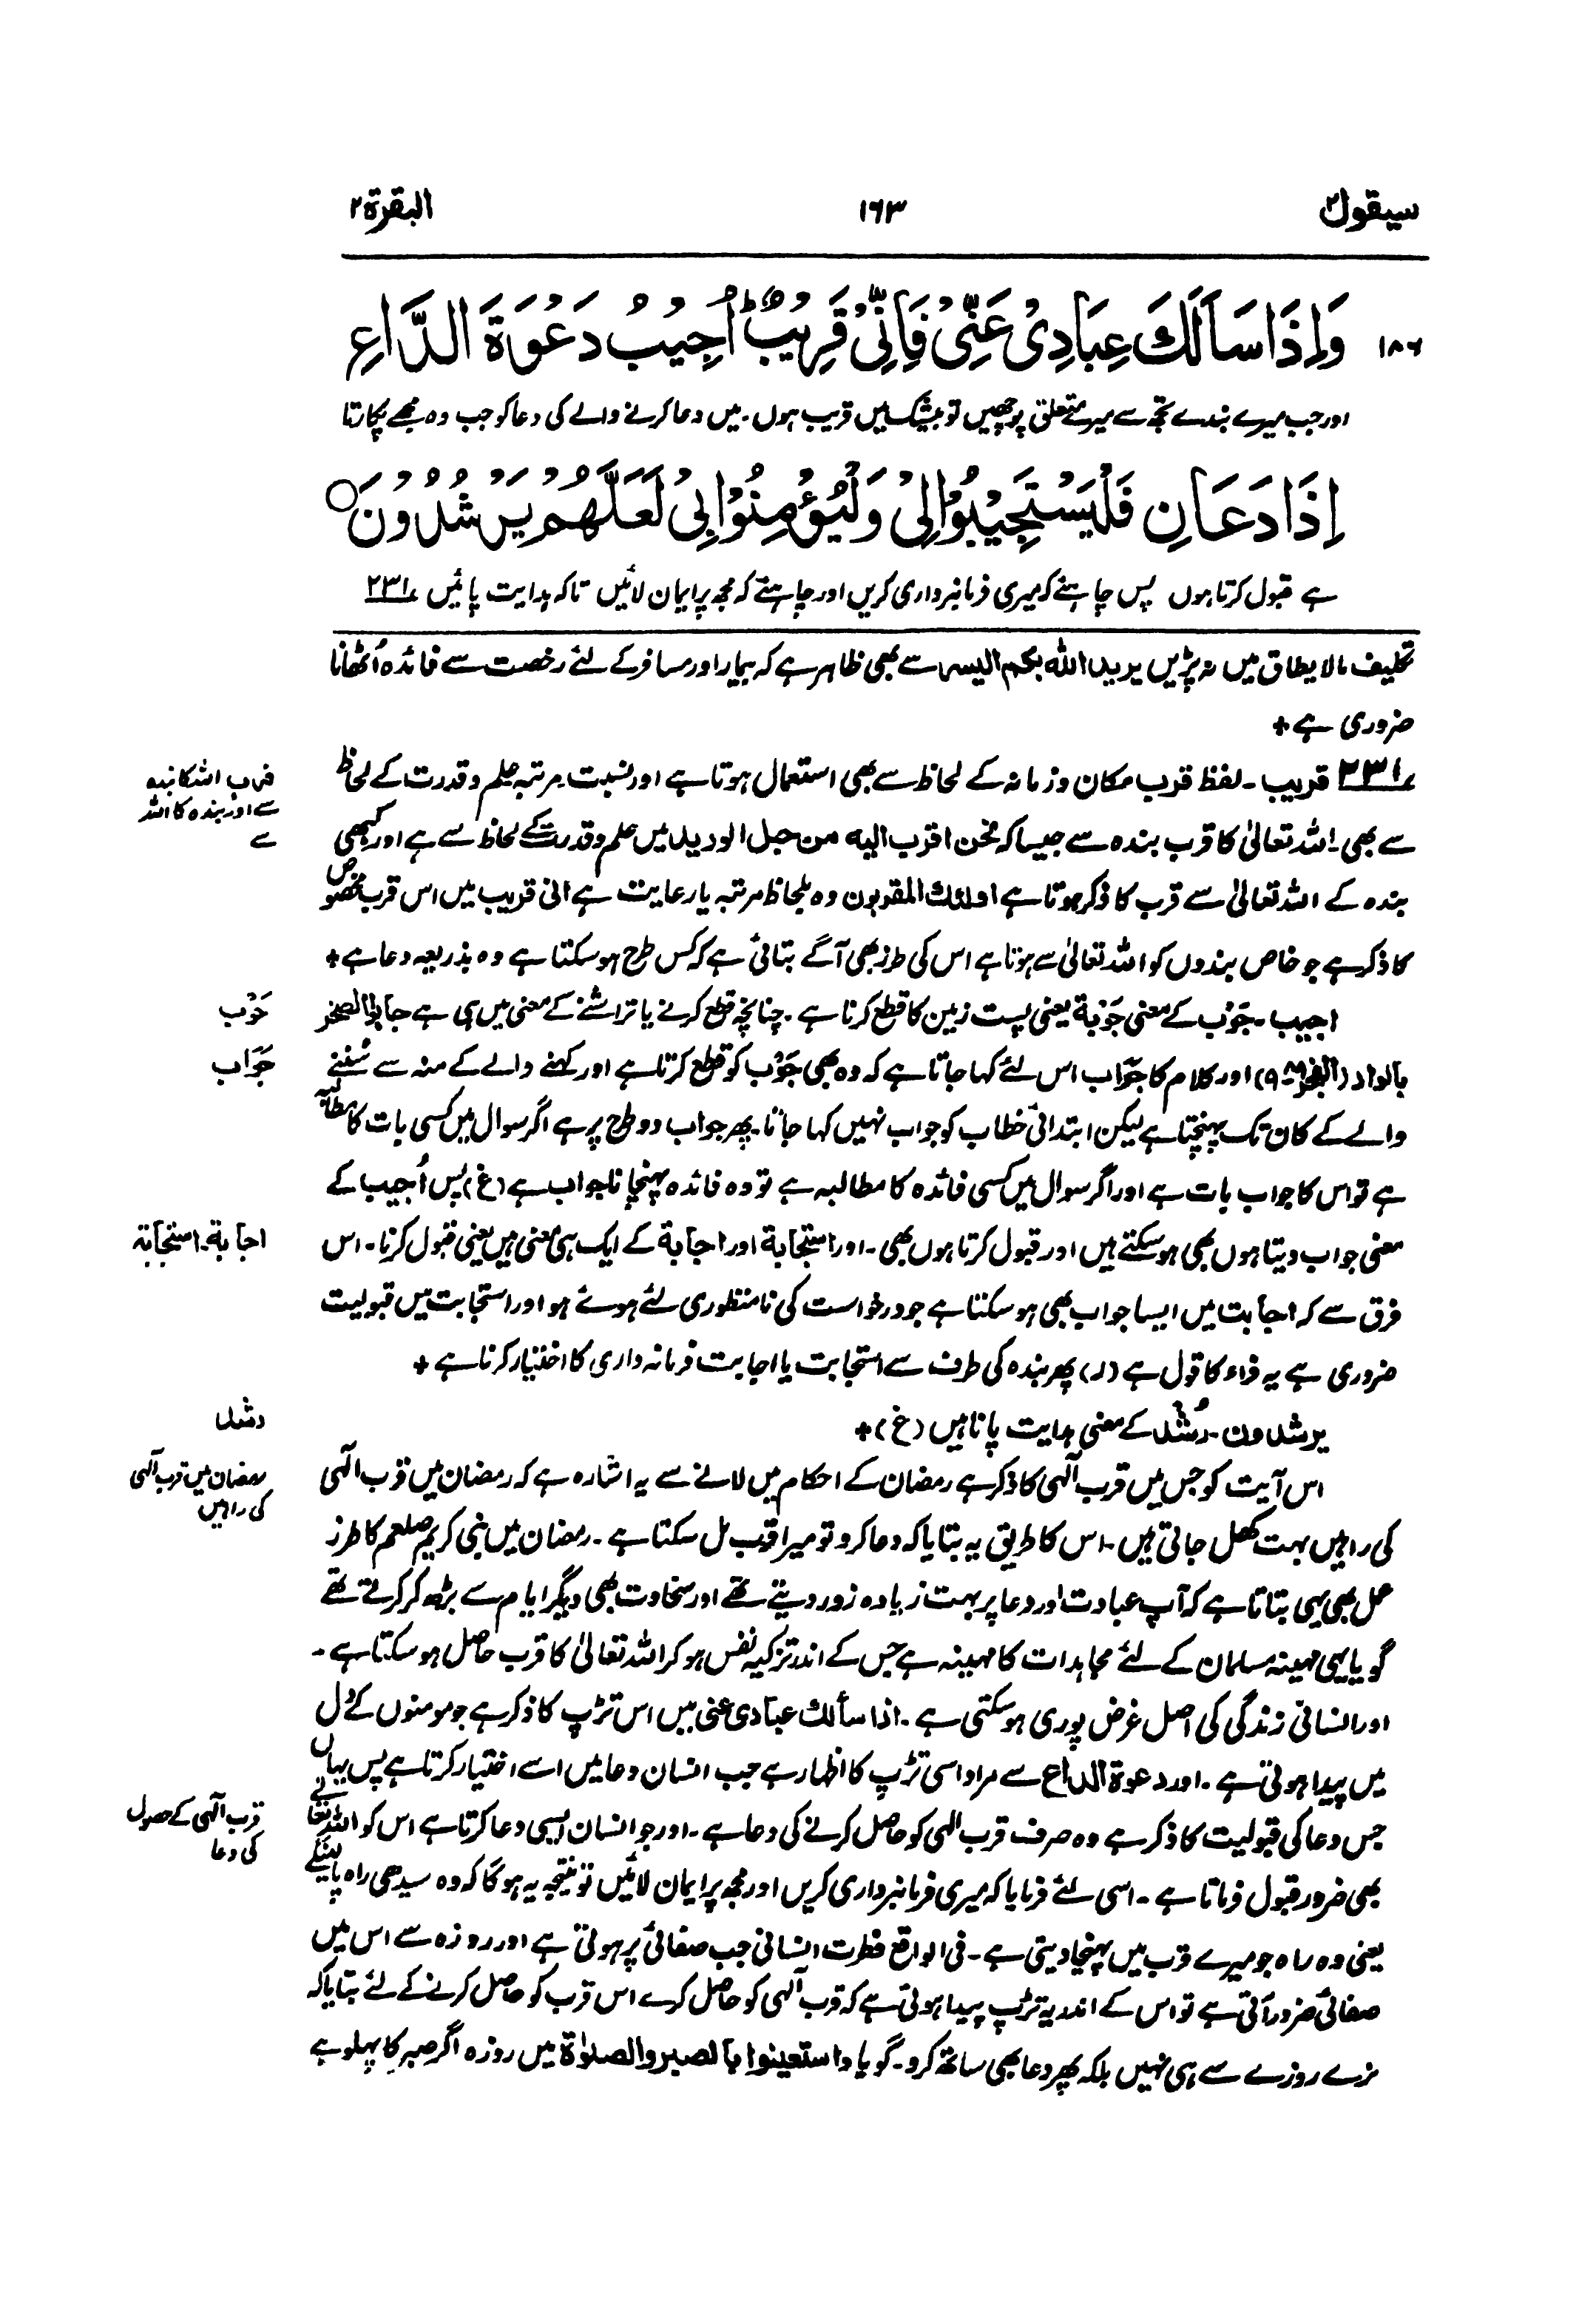 سیقول ۲
۱۶۳
البقرة ۲
۱۸۶ وَاِذَا سَاَلَكَ عِبَادِىْ عَنِّىْ فَاِنِّىْ قَرِيْبٌ ؕ اُجِيْبُ دَعْوَةَ الدَّاعِ
اور جب میرے بندے تجھ سے میرے متعلق پوچھیں تو بیشک میں قریب ہوں۔ میں دعا کرنے والے کی دعا کو جب وہ مجھے پکارتا
اِذَا دَعَانِ فَلْيَسْتَجِيْبُوْا لِىْ وَلْيُؤْمِنُوْا بِىْ لَعَلَّهُمْ يَرْشُدُوْنَ ○
ہے قبول کرتا ہوں پس چاہئے کہ میری فرمانبرداری کریں اور چاہئے کہ مجھ پر ایمان لائیں تاکہ ہدایت پائیں ۲۳۱
تکلیف مالا یطاق میں نہ پڑیں یرید الله بکم الیسر سے بھی ظاہر ہے کہ بیمار اور مسافر کے لئے رخصت سے فائدہ اُٹھانا
ضروری ہے +
۲۳۱ قریب۔ لفظ قرب مکان و زمانہ کے لحاظ سے بھی استعمال ہوتا ہے اور نسبت۔ مرتبہ علم و قدرت کے لحاظ
قرب اللہ کا بندہ
سے اور بندہ کا اللہ
سے
سے بھی۔ اللہ تعالیٰ کا قرب بندہ سے جیسا کہ نحن اقرب الیه من حبل الورید میں علم و قدرت کے لحاظ سے ہے اور کبھی
بندہ کے اللہ تعالیٰ سے قرب کا ذکر ہوتا ہے اولئك المقربون وہ بلحاظ مرتبہ یا رعایت ہے انی قریب میں اس قرب مخصوص
کا ذکر ہے جو خاص بندوں کو اللہ تعالیٰ سے ہوتا ہے اس کی طرز بھی آگے بتائی ہے کہ کس طرح ہو سکتا ہے وہ بذریعہ دعا ہے +
اجیب۔ جَوْب کے معنی جَوْبَة یعنی پست زمین کا قطع کرنا ہے۔ چنانچہ قطع کرنے یا تراشنے کے معنی میں ہی ہے جابوا الصخر
جَوْب
بالواد (الفجر ۸۹-۹) اور کلام کا جَوَاب اس لئے کہا جاتا ہے کہ وہ بھی جَوْب کو قطع کرتا ہے اور کہنے والے کے منہ سے سُننے
جَوَاب
والے کے کان تک پہنچتا ہے لیکن ابتدائی خطاب کو جواب نہیں کہا جاتا۔ پھر جواب دو طرح پر ہے اگر سوال میں کسی بات کا مطالبہ
ہے تو اس کا جواب بات ہے اور اگر سوال میں کسی فائدہ کا مطالبہ ہے تو وہ فائدہ پہنچانا جواب ہے (غ) پس اُجیب کے
معنی جواب دیتا ہوں بھی ہو سکتے ہیں اور قبول کرتا ہوں بھی۔ اور استجابة اور اجابة کے ایک ہی معنی ہیں یعنی قبول کرنا۔ اس
اجابة۔ استجابة
فرق سے کہ اجابت میں ایسا جواب بھی ہو سکتا ہے جو درخواست کی نامنظوری لئے ہوئے ہو اور استجابت میں قبولیت
ضروری ہے یہ فراء کا قول ہے (ر) پھر بندہ کی طرف سے استجابت یا اجابت فرمانہ داری کا اختیار کرنا ہے +
یرشدون۔ رُشْد کے معنی ہدایت پانا ہیں (غ) +
رشد
اس آیت کو جس میں قرب الٰہی کا ذکر ہے رمضان کے احکام میں لانے سے یہ اشارہ ہے کہ رمضان میں قرب الٰہی
رمضان میں قرب الٰہی
کی راہیں
کی راہیں بہت کھل جاتی ہیں۔ اس کا طریق یہ بتایا کہ دعا کرو تو میرا قرب مل سکتا ہے۔ رمضان میں نبی کریم صلعم کا طرز
عمل بھی یہی بتاتا ہے کہ آپ عبادت اور دعا پر بہت زیادہ زور دیتے تھے اور سخاوت بھی دیگر ایام سے بڑھ کر کرتے تھے
گویا یہی مہینہ مسلمان کے لئے مجاہدات کا مہینہ ہے جس کے اندر تزکیہ نفس ہو کر اللہ تعالیٰ کا قرب حاصل ہو سکتا ہے۔
اور انسانی زندگی کی اصل غرض پوری ہو سکتی ہے۔ اذا سألك عبادی عنی میں اس تڑپ کا ذکر ہے جو مومنوں کے دل
میں پیدا ہوتی ہے۔ اور دعوة الداع سے مراد اسی تڑپ کا اظہار ہے جب انسان دعا میں اسے اختیار کرتا ہے پس یہاں
جس دعا کی قبولیت کا ذکر ہے وہ صرف قرب الٰہی کو حاصل کرنے کی دعا ہے۔ اور جو انسان ایسی دعا کرتا ہے اس کو اللہ تعالیٰ
قرب الٰہی کے حصول
کی دعا
بھی ضرور قبول فرماتا ہے۔ اسی لئے فرمایا کہ میری فرمانبرداری کریں اور مجھ پر ایمان لائیں تو نتیجہ یہ ہو گا کہ وہ سیدھی راہ پائینگے
یعنی وہ راہ جو میرے قرب میں پہنچا دیتی ہے۔ فی الواقع فطرت انسانی جب صفائی پر ہوتی ہے اور روزہ سے اس میں
صفائی ضرور آتی ہے تو اس کے اندر یہ تڑپ پیدا ہوتی ہے کہ قرب الٰہی کو حاصل کرے اس قرب کو حاصل کرنے کے لئے بتایا کہ
نرے روزے سے ہی نہیں بلکہ پھر دعا بھی ساتھ کرو۔ گویا واستعینوا بالصبر والصلوٰة میں روزہ اگر صبر کا پہلو ہے